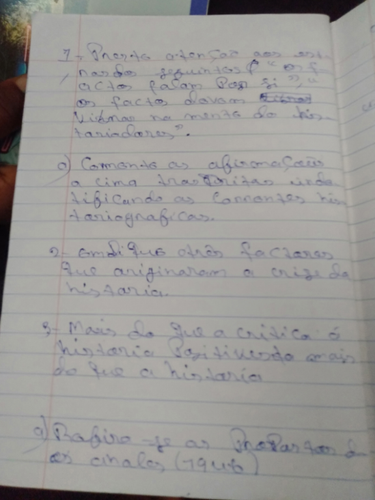 7- Preste atenção aos est-
nardos seguintes (" os f-
actos falam Por si", "
os factos davam
Vitras na mente do his-
tariadores".
a) Comente as afirmações
a cima transcritas inde
tificando as correntes his-
tariograficas.
2- indique três factores
que ariginaram a crize da
histaria.
3- Mais do que a critica á
histaria Positivista mais
do que a histaria
a) Refira-se as Propastas d
os anales (1946)